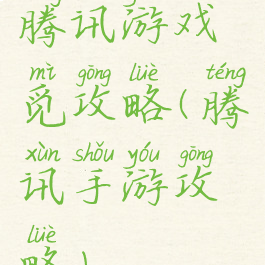 腾讯游戏
mì gōng lüè téng
觅攻略(腾
xùn shǒu yóu gōng
讯手游攻
lüè
略)